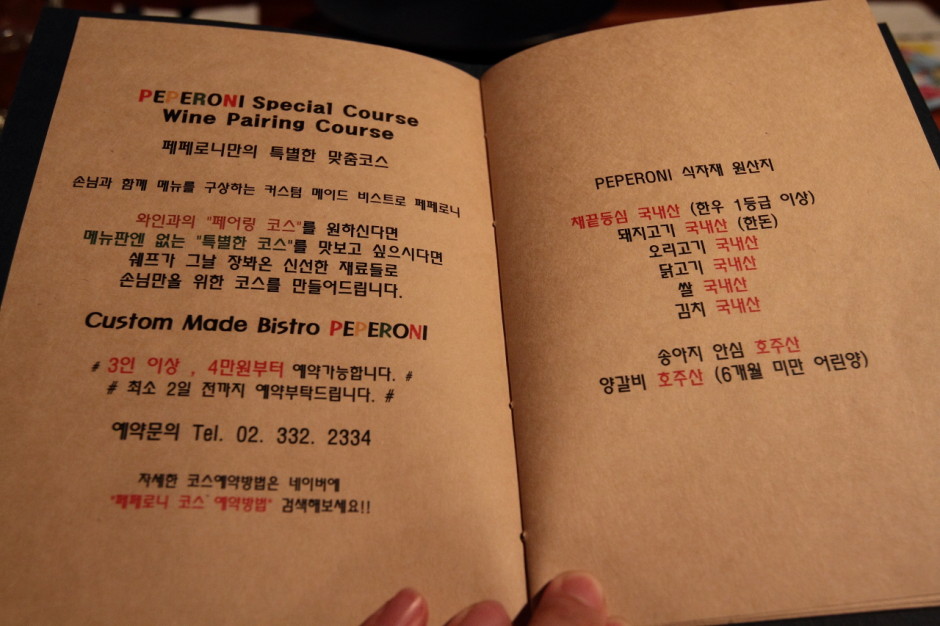 PEPERONI Special Course
Wine Pairing Course
페페로니만의 특별한 맞춤코스
손님과 함께 메뉴를 구상하는 커스텀 메이드 비스트로 페페로니
와인과의 "페어링 코스"를 원하신다면
메뉴판엔 없는 "특별한 코스"를 맛보고 싶으시다면
쉐프가 그날 장봐온 신선한 재료들로
손님만을 위한 코스를 만들어드립니다.
Custom Made Bistro PEPERONI
# 3인 이상 , 4만원부터 예약가능합니다. #
# 최소 2일 전까지 예약부탁드립니다. #
예약문의 Tel. 02. 332. 2334
자세한 코스예약방법은 네이버에
"페페로니 코스 예약방법" 검색해보세요!!
PEPERONI 식자재 원산지
채끝등심 국내산 (한우 1등급 이상)
돼지고기 국내산 (한돈)
오리고기 국내산
닭고기 국내산
쌀 국내산
김치 국내산
송아지 안심 호주산
양갈비 호주산 (6개월 미만 어린양)